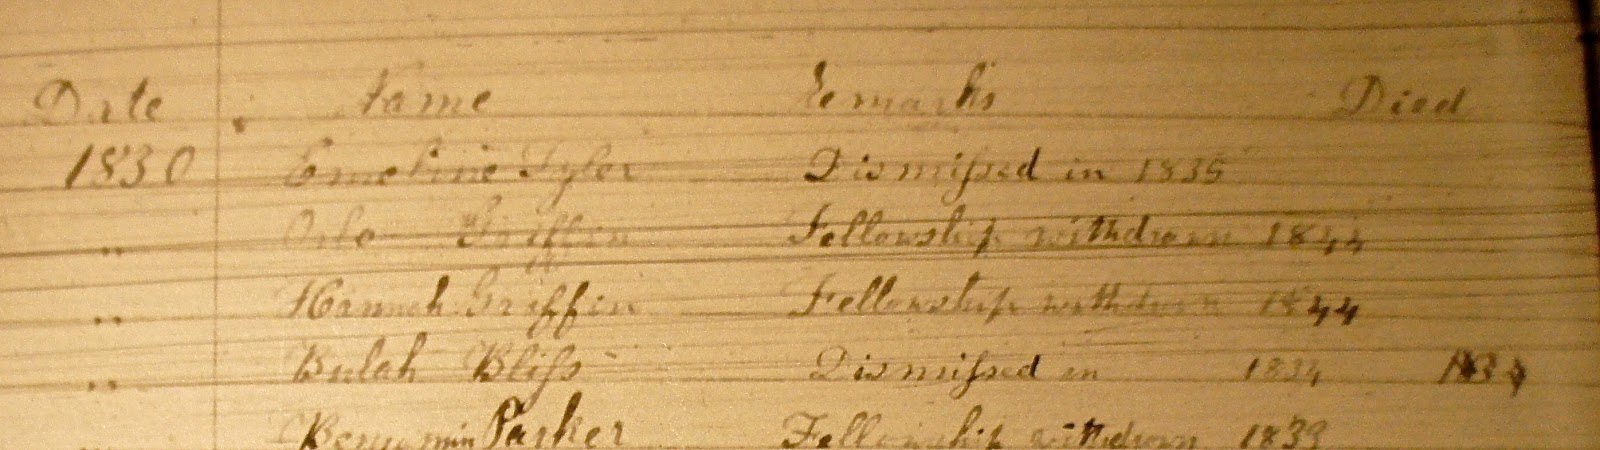 Date Name Remarks Died
1830 Emeline Tyler Dismissed in 1835
" Griffin Fellowship withdrawn 1844
" Hannah Griffin Fellowship withdrawn 1844
" Bulah Bliss Dismissed in 1834
Benjamin Parker Fellowship withdrawn 1839